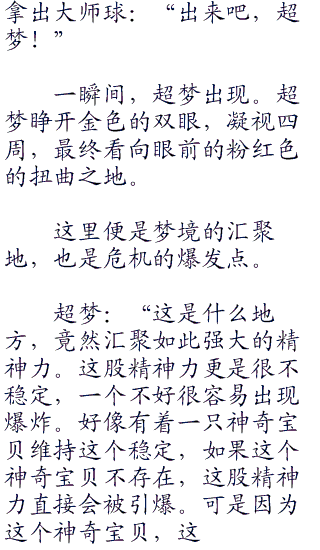 拿出大师球：“出来吧，超
梦！”
一瞬间，超梦出现。超
梦睁开金色的双眼，凝视四
周，最终看向眼前的粉红色
的扭曲之地。
这里便是梦境的汇聚
地，也是危机的爆发点。
超梦：“这是什么地
方，竟然汇聚如此强大的精
神力。这股精神力更是很不
稳定，一个不好很容易出现
爆炸。好像有着一只神奇宝
贝维持这个稳定，如果这个
神奇宝贝不存在，这股精神
力直接会被引爆。可是因为
这个神奇宝贝，这